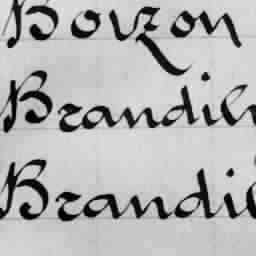 Boizon
Brandili
Brandil